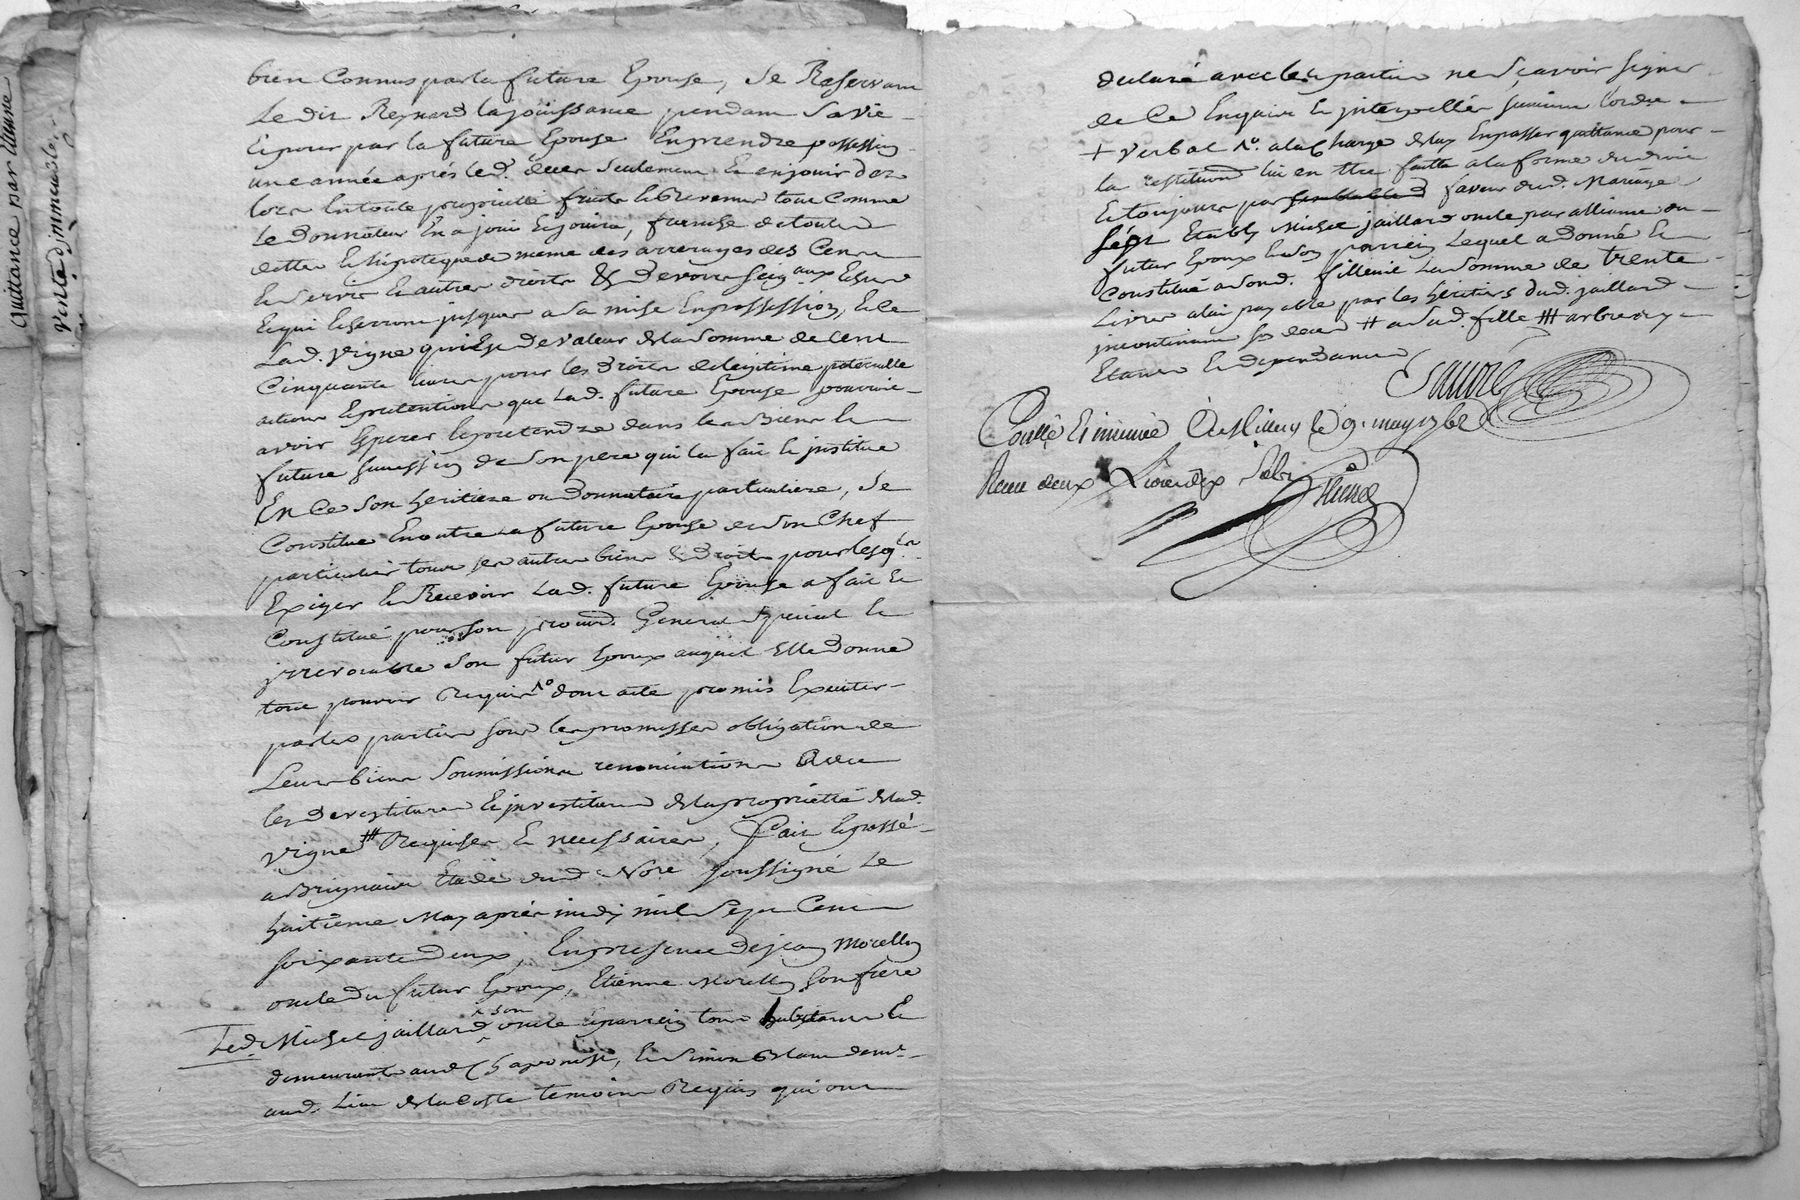 quittance par Etienne
vente d'immeuble
bien Connus par la future Epouse, se Reservant
Ledit Reynard la joüissance pendant sa vie
Et pour par la future Epouse En prendre possession
une année après led. deces seulement Et en jouir dez
lors En toute proprieté fruits Et Revenus tout Comme
Le donnateur En a joui Et jouira, franche de toutes
dettes Et hipoteques de meme des arrerages des Cens
Et servis Et autres droits & devoirs seig.aux Echus
Et qui Echerront jusques a sa mise En possession, Et Ce
Lad. vigne qui Est de valeur de la somme de Cent
Cinquante livres pour les droits de legitime paternelle
actions Et pretentions que Lad. future Epouse pourroit
avoir Esperer Et pretendre dans les Biens Et
future succession de son pere qui la fait Et institue
En Ce son heritiere ou donnataire particuliere, se
Constitue En outre la future Epouse de son Chef
particulier tous ses autres biens & droits pour lesq.els
Exiger Et Recevoir Lad. future Epouse a fait Et
Constitué pour son procur. General special Et
irrevocable son futur Epoux auquel Elle donne
tout pouvoir Requis dont acte promis Executer
par les parties sous les promesses obligation de
Leurs biens soumissions renonciations Avec
les devestitures Et investitures de la proprietté de lad.
vigne Requises Et necessaires, fait Et passé
a Brignais Etude dud. No.re soussigné Le
huitième May après midy mil sept Cent
soixante deux, En presence de jean Morellon
oncle du futur Epoux, Etienne Morellon son frere
Led. Michel jaillard son oncle Et parrein tous habitants Et
demeurants aud. Chaponost, Et Simon Blanc dem.t
aud. Lieu de la Coste temoins Requis qui ont
declaré avec les parties ne sçavoir signer
de Ce Enquis Et interpellés suivant l'ordre
+ verbal No. a la Charge de luy En passer quittance pour
la restitution lui en Etre faitte a la forme du droit
Et toujours par faveur dud. Mariage
s'est Etably Michel jaillard oncle par alliance du
futur Epoux Et son parrein Lequel a donné Et
Constitué a sond. filleul La somme de trente
Livres a lui payable par les héritiers dud. jaillard
incontinent son deces # a sad. fille ### arbres y
Etants Et dependances
Sauve
Conllé Et insinué A le 9. may 1762
Receu deux Livres dix sols